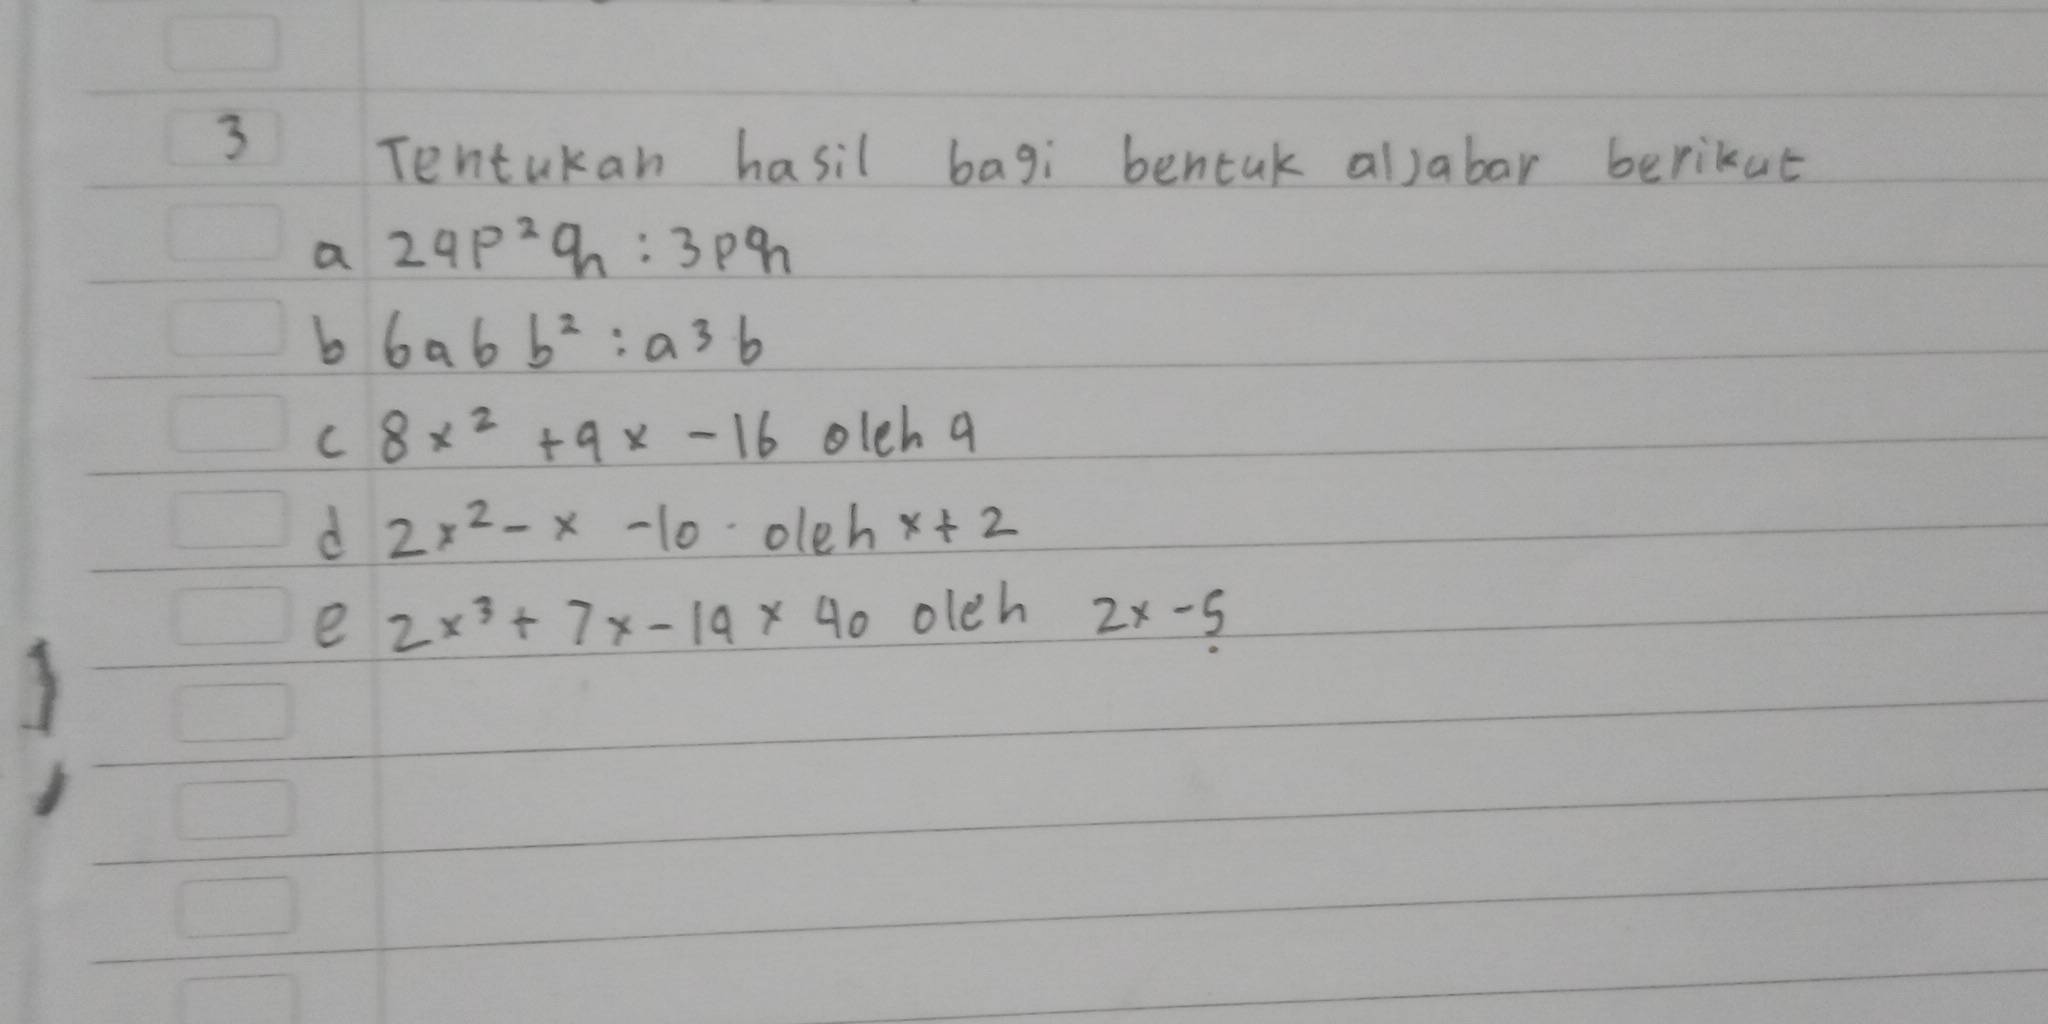 3 Tentukan hasil bagi bentuk aljabar berikut
a 24p²q : 3pq
b 6a6 b² : a³b
c 8x² + 4x - 16 oleh 4
d 2x² - x - 10 oleh x + 2
e 2x³ + 7x - 14 x 40 oleh 2x - 5